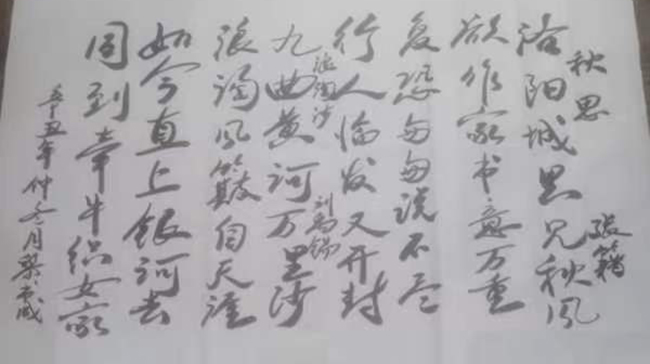 秋思 張籍
洛阳城里见秋风
欲作家书意万重
复恐匆匆说不尽
行人临发又开封
浪淘沙 刘禹锡
九曲黄河万里沙
浪淘风簸自天涯
如今直上银河去
同到牵牛织女家
辛丑年仲冬月梁